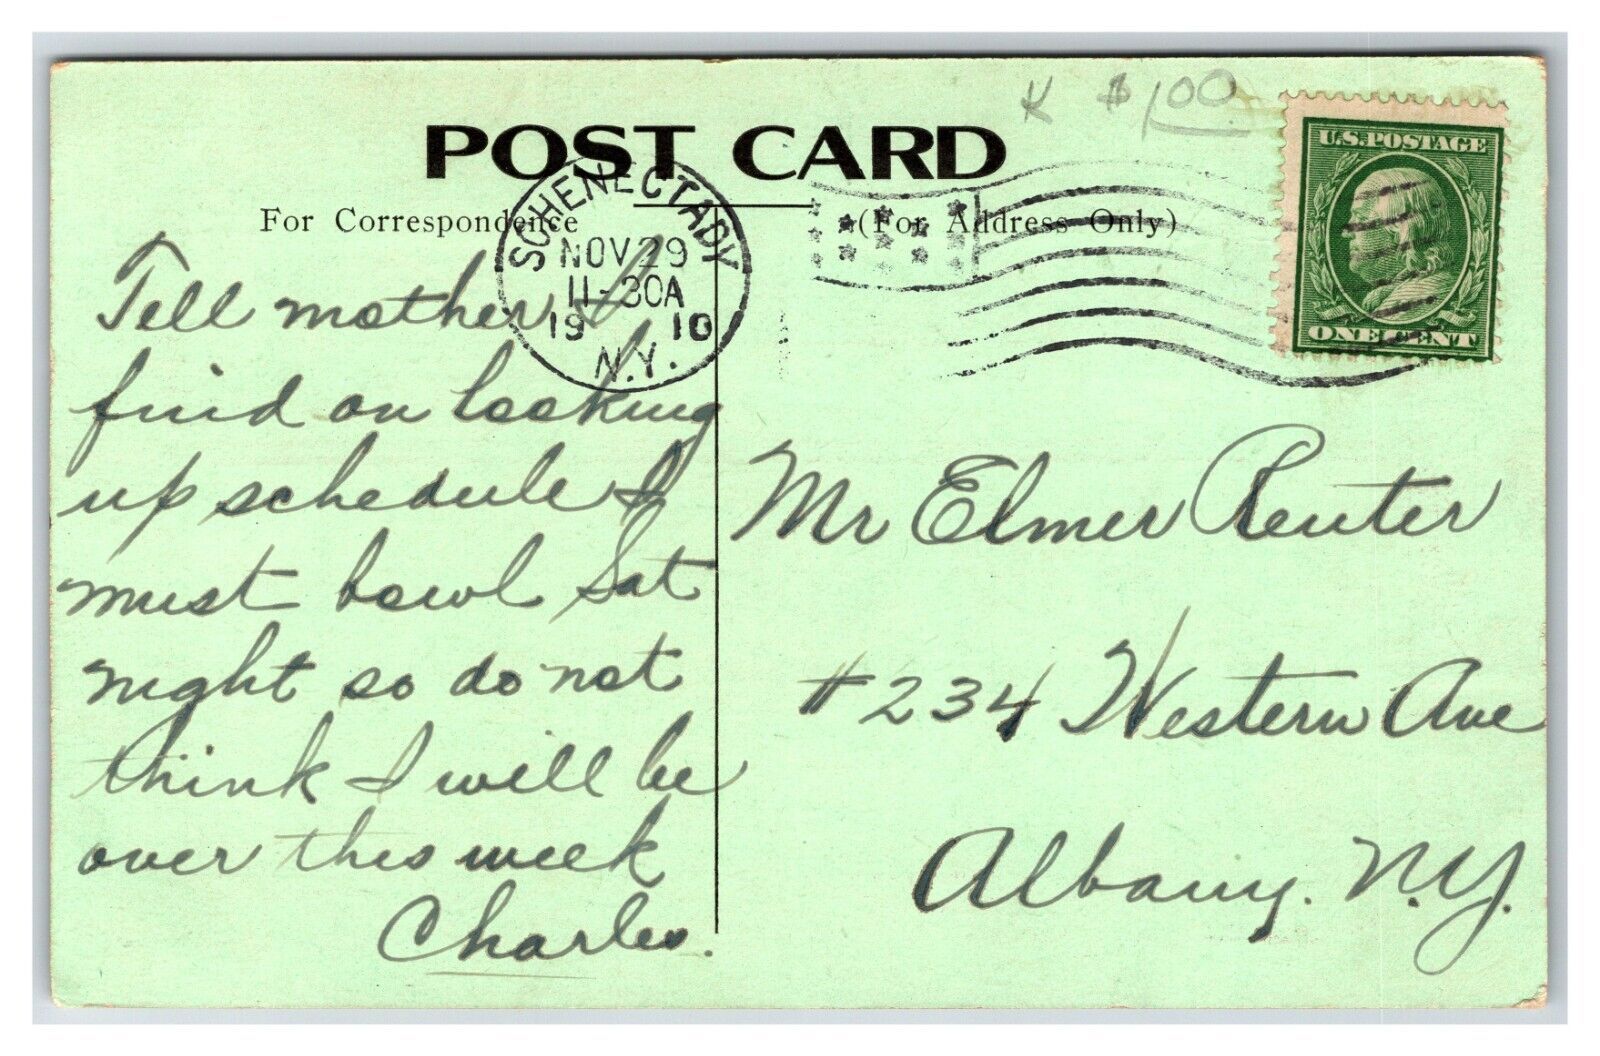 K $1.00
U.S. POSTAGE
ONE CENT
POST CARD
For Correspondence
(For Address Only)
SCHENECTADY
NOV 29
11-30A
19 10
N.Y.
Tell mother I
find on looking
up schedule I
must bowl Sat
night so do not
think I will be
over this week
Charles.
Mr Elmer Reuter
#234 Western Ave
Albany. N.Y.